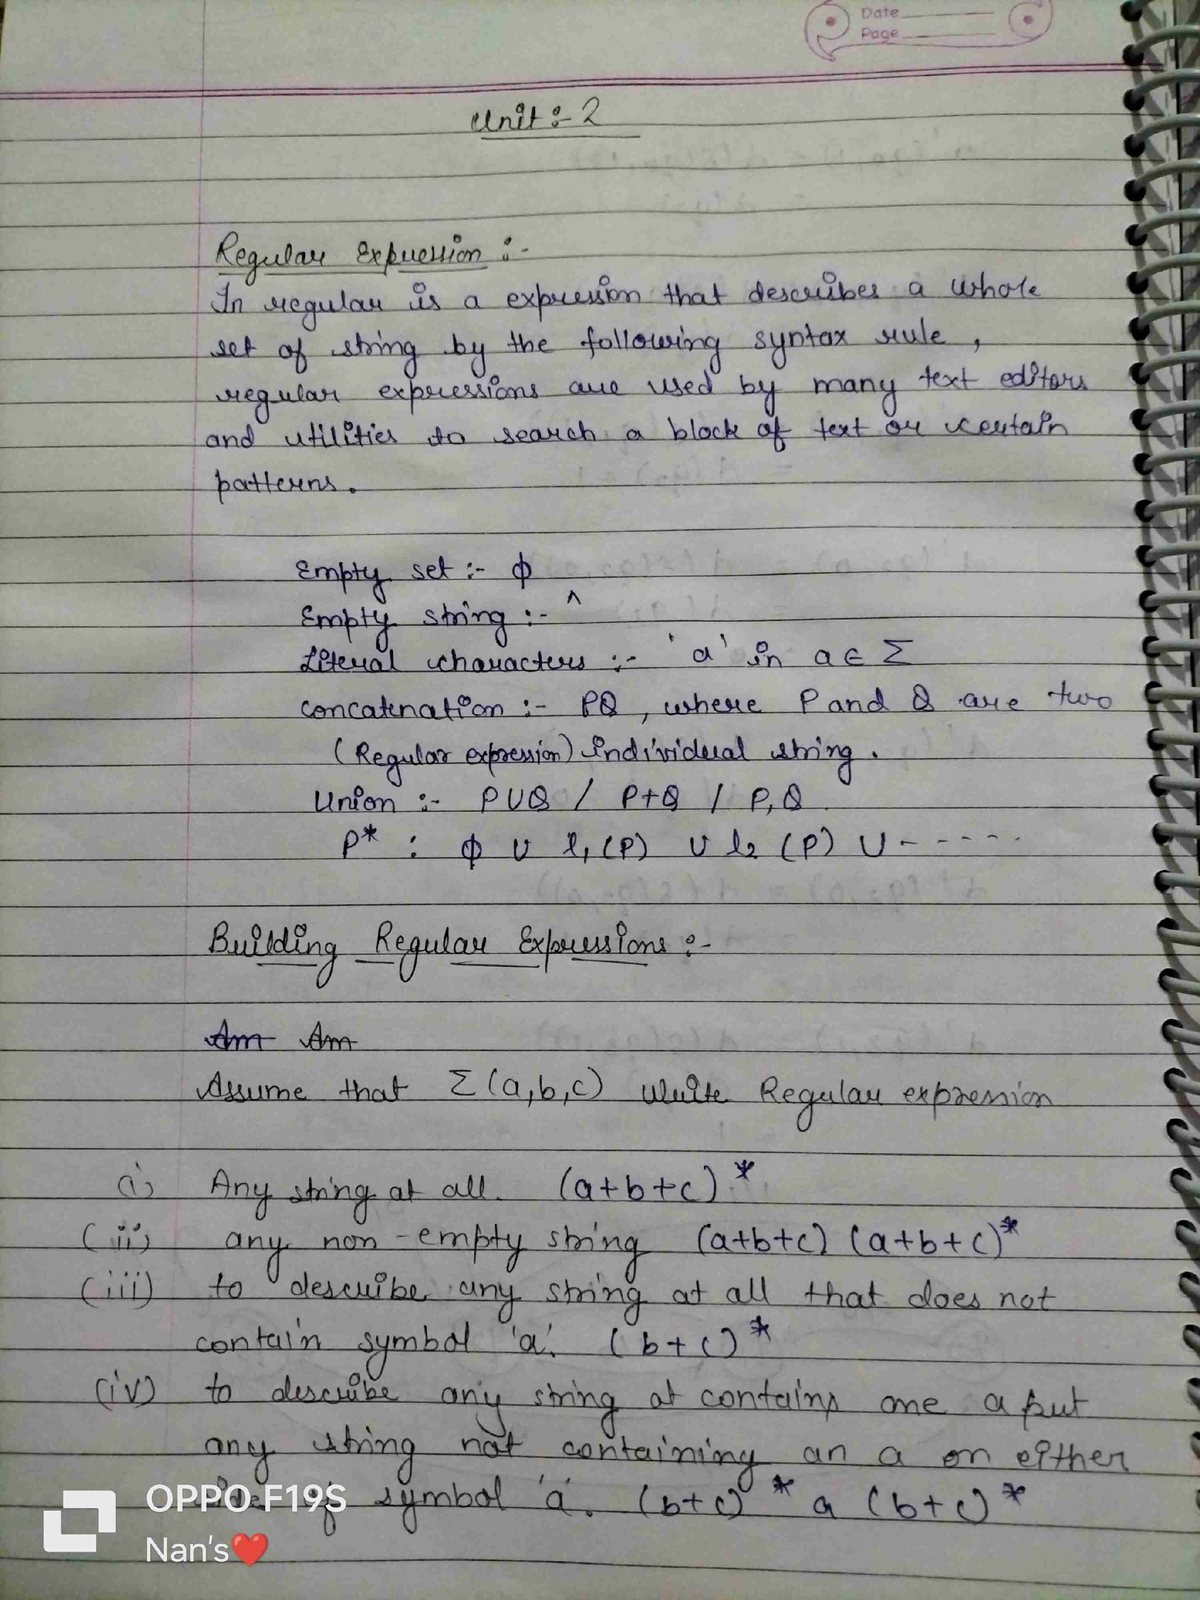 Date
Page
Unit :- 2
Regular Expression :-
In regular is a expression that describes a whole
set of string by the following syntax rule ,
regular expressions are used by many text editors
and utilities to search a block of text or certain
patterns.
Empty set :- ϕ
Empty string :- ^
Literal characters :- 'a' in a ∈ Σ
concatenation :- PQ , where P and Q are two
(Regular expression) individual string .
Union :- PUQ / P+Q / P,Q
P* : ϕ U l₁(P) U l₂ (P) U - - - - -
Building Regular Expressions :-
Am Am
Assume that Σ(a,b,c) Write Regular expression
(i) Any string at all. (a+b+c)*
(ii) any non-empty string (a+b+c) (a+b+c)*
(iii) to describe any string at all that does not
contain symbol 'a'. (b+c)*
(iv) to describe any string at contains one a put
any string not containing an a on either
of symbol 'a'. (b+c)* a (b+c)*
OPPO F19S
Nan's❤️